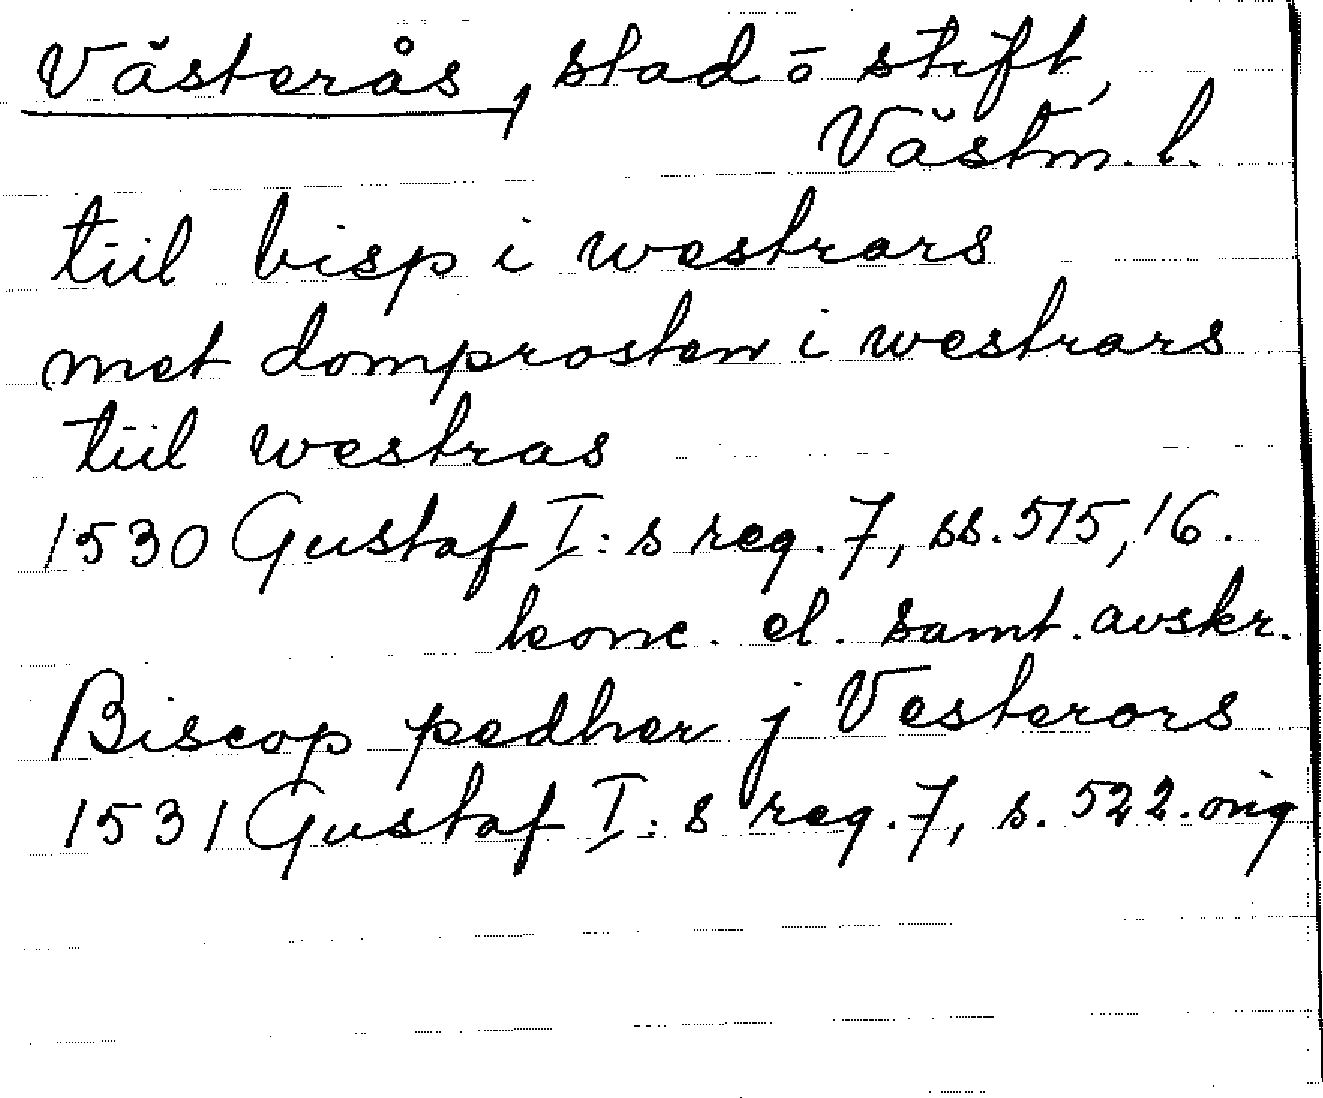 Västerås, stad ō stift,
Västm. l.
tiil bisp i westrars
met domprosten i westrars
tiil westras
1530 Gustaf I:s reg. 7, ss. 515, 16.
konc. el. samt. avskr.
Biscop pedher j Vesterors
1531 Gustaf I:s reg. 7, s. 522. orig